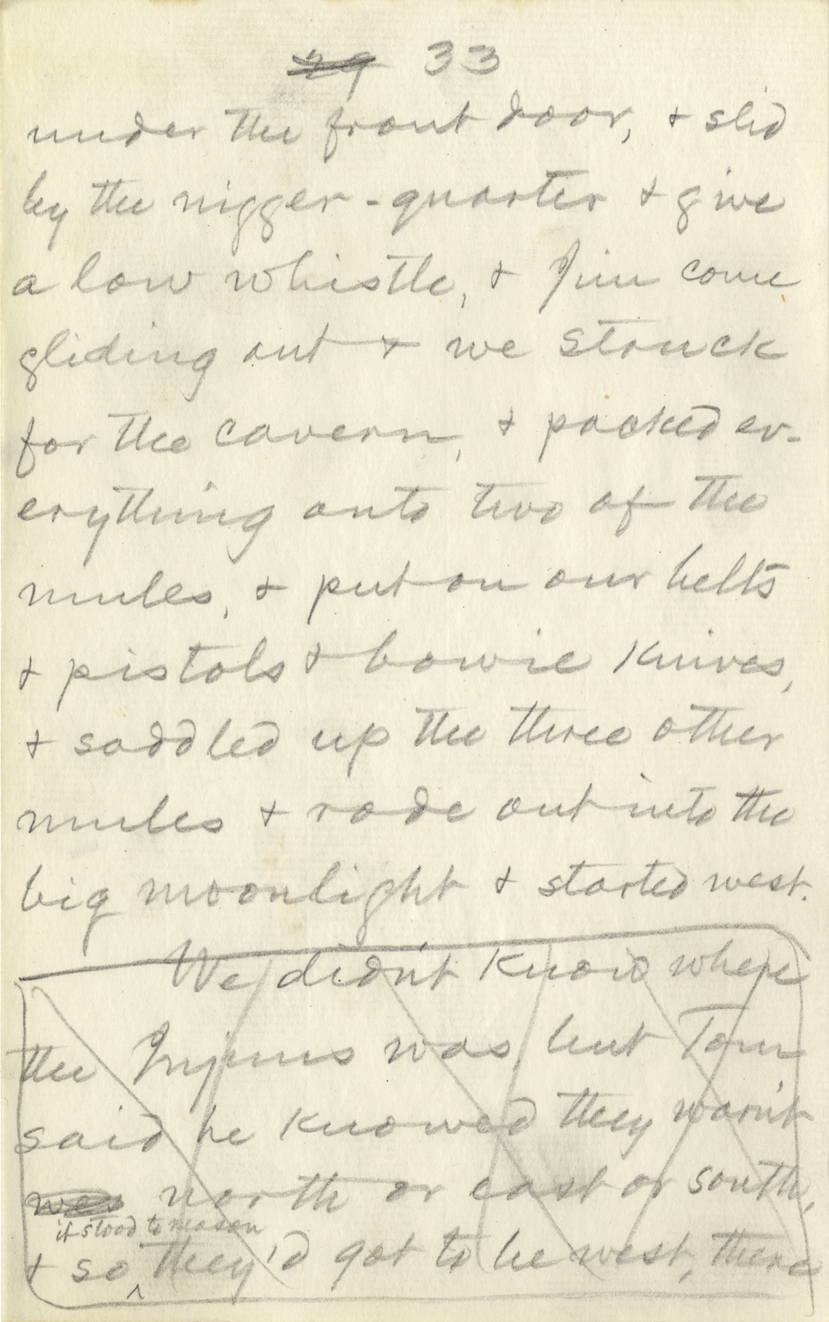 29 33
under the front door, & slid
by the nigger-quarter & give
a low whistle, & Jim come
gliding out & we struck
for the cavern, & packed ev-
erything onto two of the
mules, & put on our belts
& pistols & bowie knives,
& saddled up the three other
mules & rode out into the
big moonlight & started west.
We didn't know where
the Injuns was, but Tom
said he knowed they warn't
was north or east or south,
it stood to reason
& so they'd got to be west, there